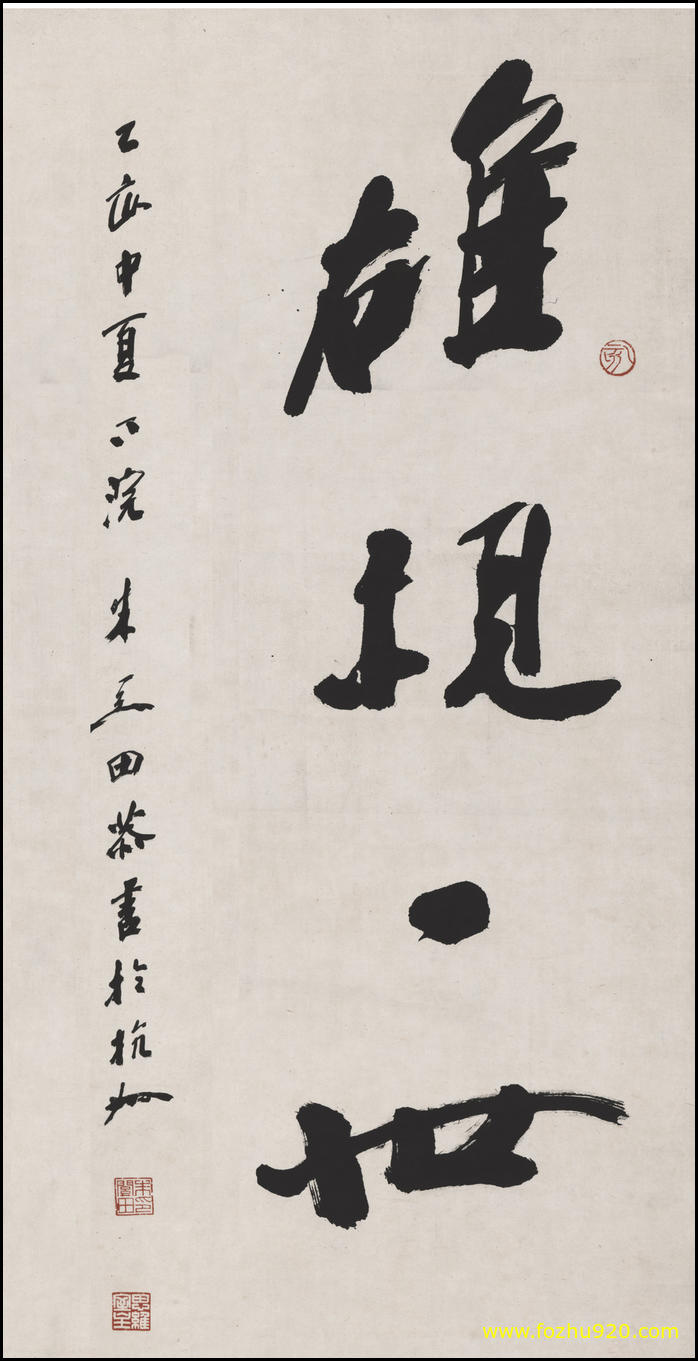 雄視一世
乙亥中夏下浣 朱關田恭書於杭州
朱印關田
www.fozhu920.com